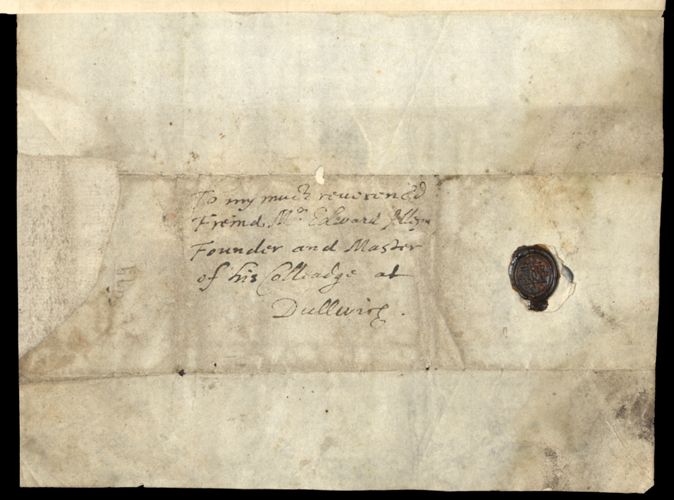 To my much reverened
Freind Mr Edward Alleyn
Founder and Master
of his Colleadge at
Dullwich.